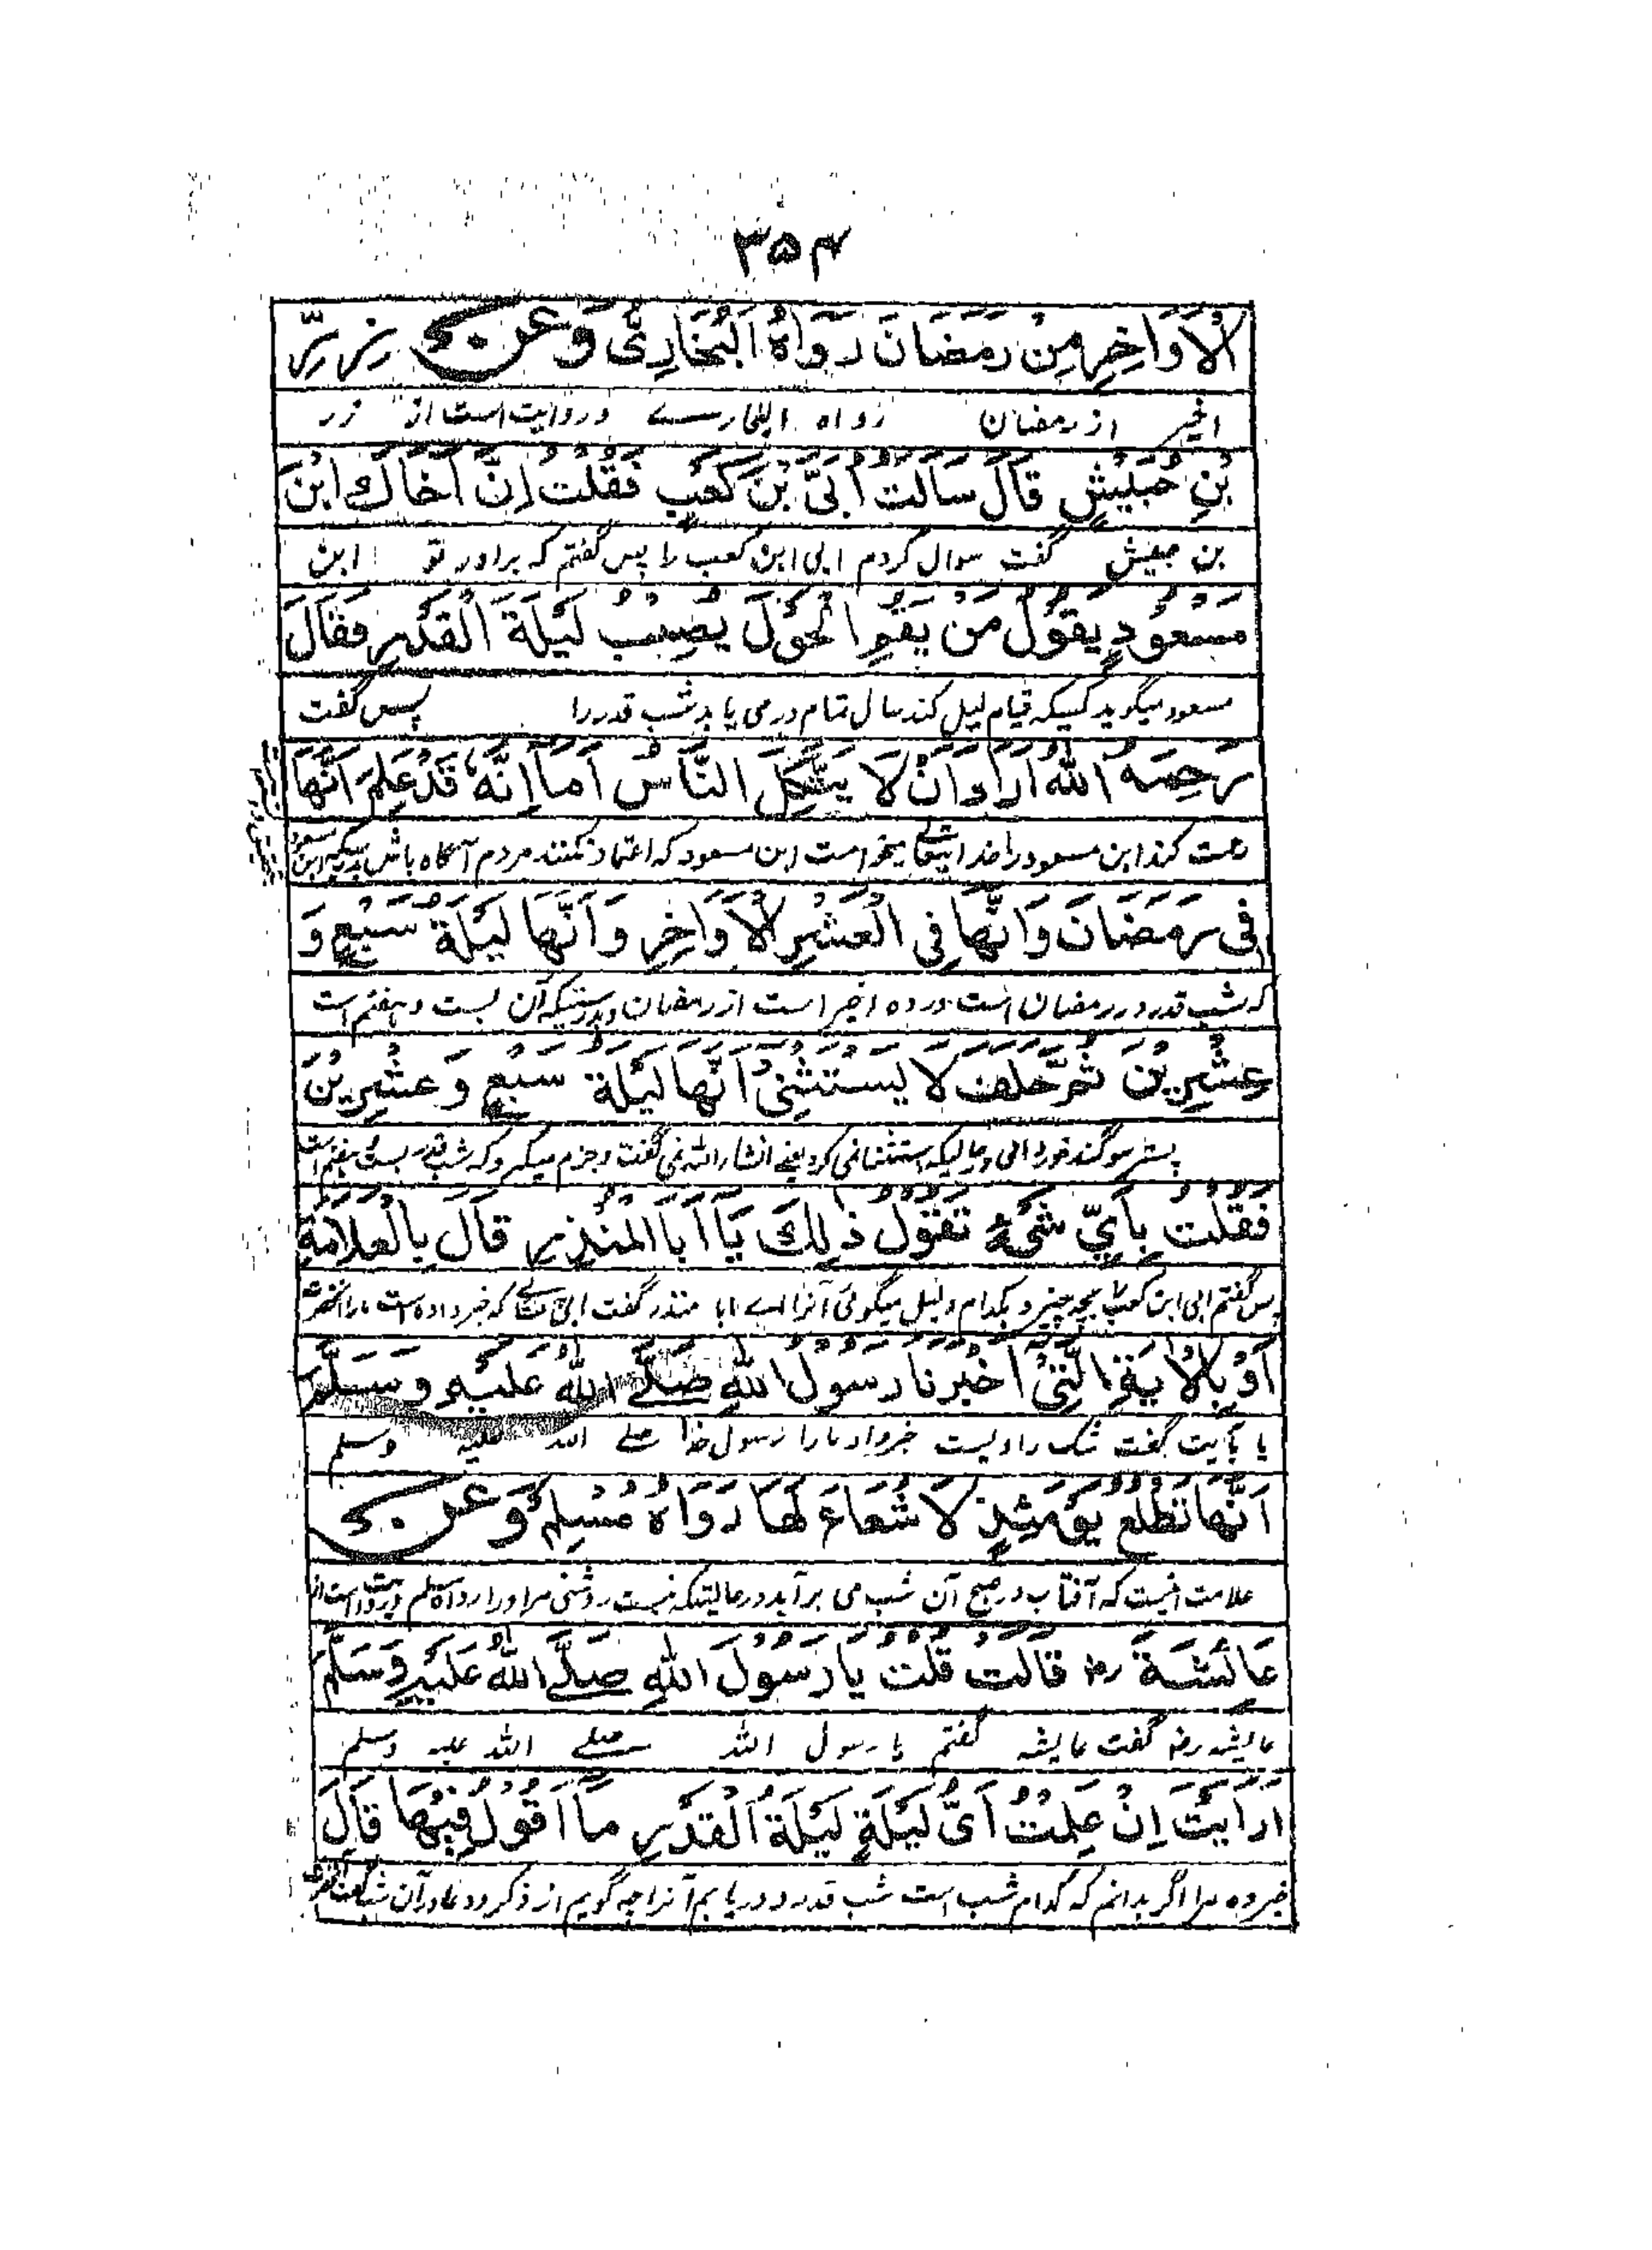 ۳۵۴
الْاَوَاخِرِ مِنْ رَمَضَانَ رَوَاهُ الْبُخَارِيُّ وَعَنْ زِرِّ
اخیر از رمضان رواه البخاری و روایت است از زر
بْنِ حُبَيْشٍ قَالَ سَاَلْتُ اُبَيَّ بْنَ كَعْبٍ فَقُلْتُ اِنَّ اَخَاكَ ابْنَ
بن حبیش گفت سوال کردم ابی ابن کعب را پس گفتم که برادر تو ابن
مَسْعُوْدٍ يَقُوْلُ مَنْ يَقُمِ الْحَوْلَ يُصِيْبُ لَيْلَةَ الْقَدْرِ فَقَالَ
مسعود میگوید کسیکه قیام لیل کند سال تمام در می یابد شب قدر را پس گفت
رَحِمَهُ اللّٰهُ اَرَادَ اَنْ لَا يَتَّكِلَ النَّاسُ اَمَا اِنَّهٗ قَدْ عَلِمَ اَنَّهَا
رحمت کند ابن مسعود را خدا تعالی میخواست ابن مسعود که اعتماد نکنند مردم آگاه باش بدرستیکه ابن مسعود
فِيْ رَمَضَانَ وَاَنَّهَا فِي الْعَشْرِ الْاَوَاخِرِ وَاَنَّهَا لَيْلَةُ سَبْعٍ وَ
که شب قدر در رمضان است در ده اخیر است از رمضان و بدرستیکه آن بست و هفتم است
عِشْرِيْنَ ثُمَّ حَلَفَ لَا يَسْتَثْنِيْ اَنَّهَا لَيْلَةُ سَبْعٍ وَعِشْرِيْنَ
پستر سوگند خورد ابی در حالیکه استثنا نمی کرد یعنی انشاء الله نمی گفت و جزم میکرد که شب قدر بست هفتم است
فَقُلْتُ بِاَيِّ شَيْءٍ تَقُوْلُ ذٰلِكَ يَا اَبَا الْمُنْذِرِ قَالَ بِالْعَلَامَةِ
پس گفتم ابی ابن کعب را بچه چیز و بکدام دلیل میگوئی آنرا اے ابا منذر گفت ابی که خبر داده است ما را آنحضرت
اَوْ بِالْاٰيَةِ الَّتِيْ اَخْبَرَنَا رَسُوْلُ اللّٰهِ صَلَّى اللّٰهُ عَلَيْهِ وَسَلَّمَ
یا بآیت گفت شک راویست خبر داد ما را رسول خدا صلے الله علیه وسلم
اَنَّهَا تَطْلُعُ يَوْمَئِذٍ لَا شُعَاعَ لَهَا رَوَاهُ مُسْلِمٌ وَعَنْ
علامت اینست که آفتاب در صبح آن شب می برآید در حالیتکه نیست روشنی مر او را رواه مسلم و روایت است از
عَائِشَةَ رض قَالَتْ قُلْتُ يَا رَسُوْلَ اللّٰهِ صَلَّى اللّٰهُ عَلَيْهِ وَسَلَّمَ
عایشه رض گفت عایشه گفتم یا رسول الله صلے الله علیه وسلم
اَرَاَيْتَ اِنْ عَلِمْتُ اَيُّ لَيْلَةٍ لَيْلَةُ الْقَدْرِ مَا اَقُوْلُ فِيْهَا قَالَ
خبر ده مرا اگر بدانم که کدام شب است شب قدر و دریابم آنرا چه گویم از ذکر و دعا در آن شب گفت آنحضرت